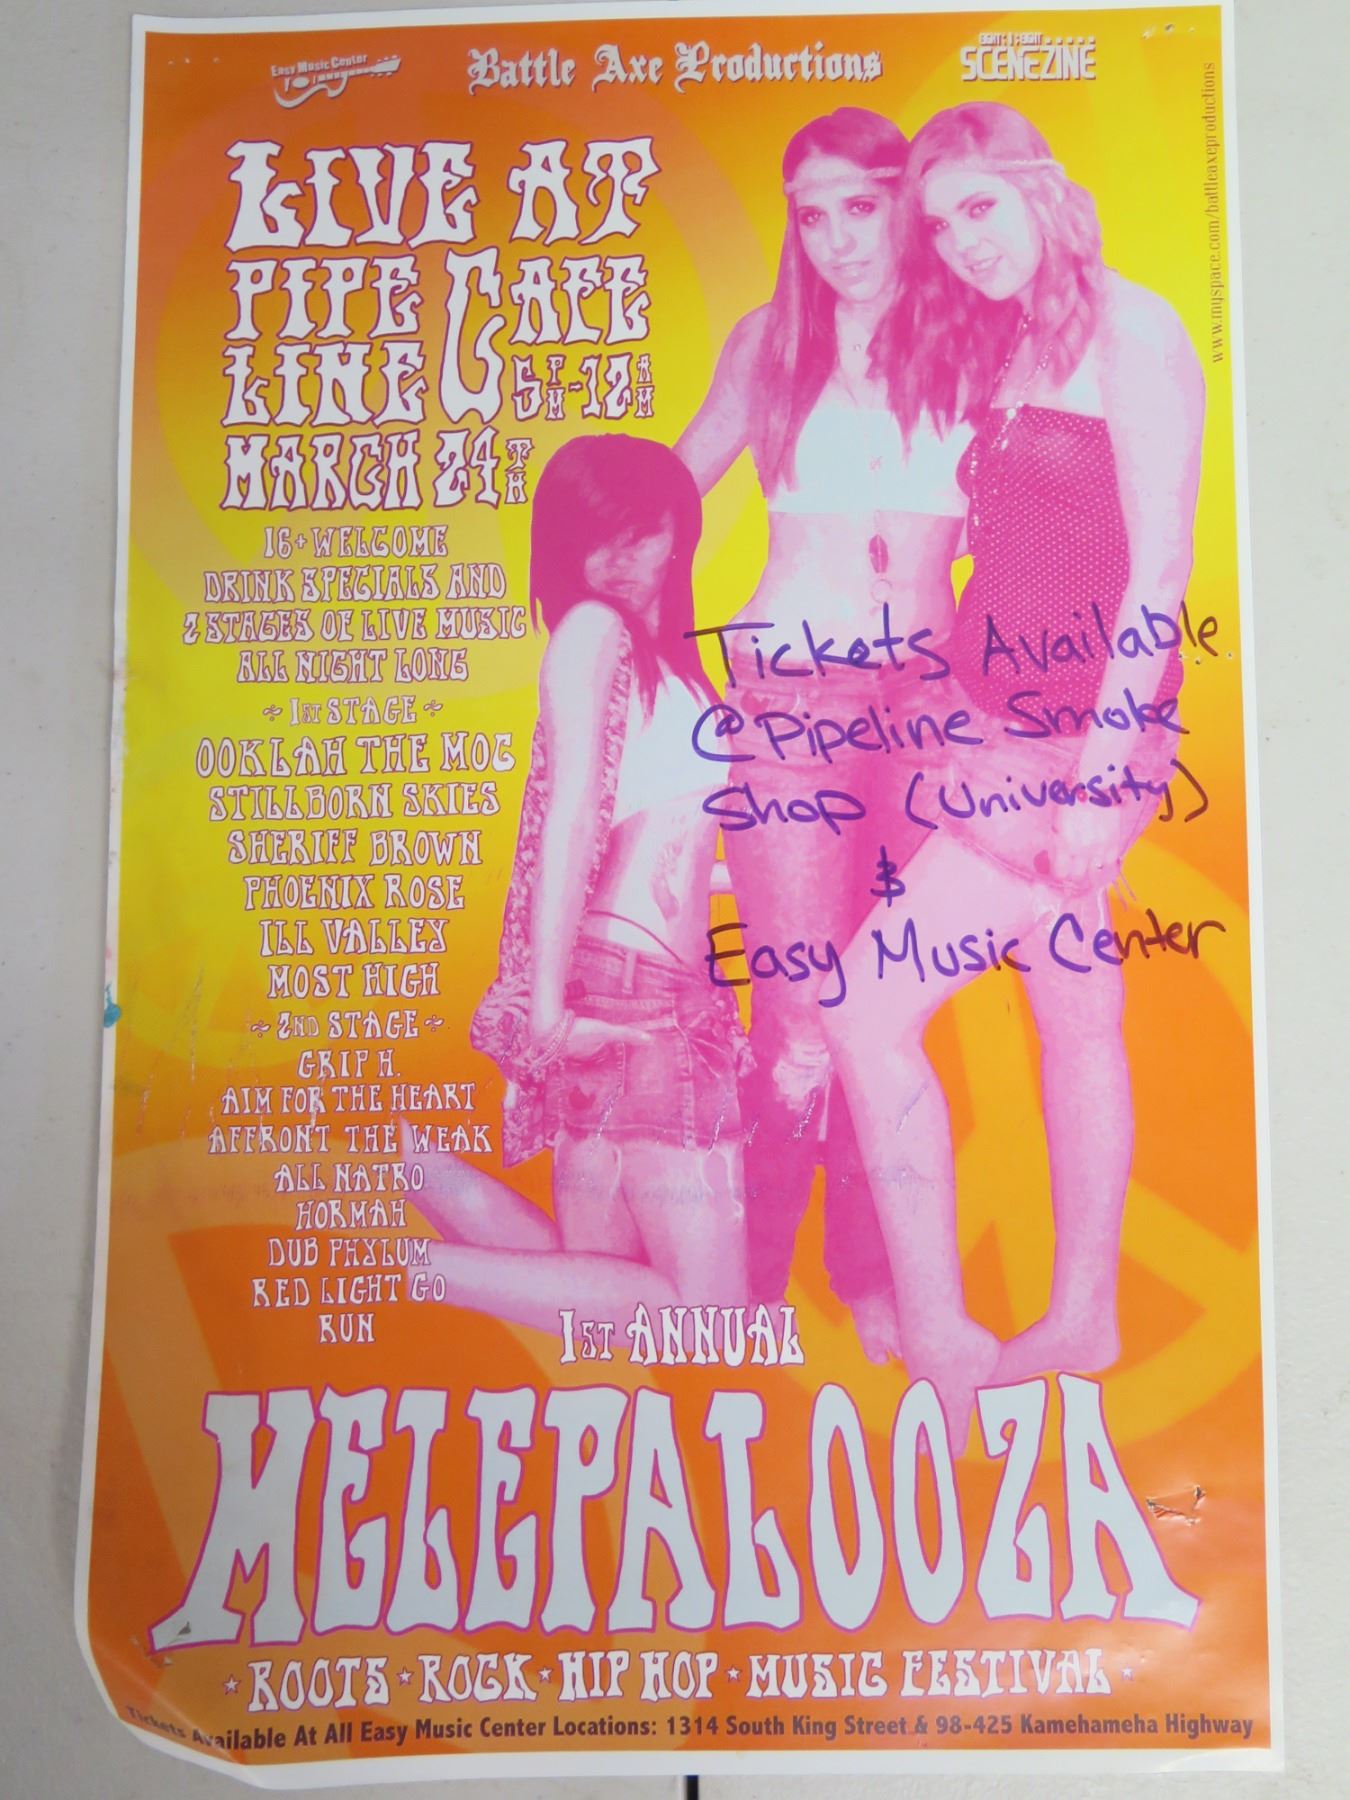 Easy Music Center
Battle Axe Productions
SCENEZINE
www.myspace.com/battleaxeproductions
LIVE AT
PIPE LINE CAFE
5PM-12AM
MARCH 24TH
16+ WELCOME
DRINK SPECIALS AND
2 STAGES OF LIVE MUSIC
ALL NIGHT LONG
1ST STAGE
OOKLAH THE MOC
STILLBORN SKIES
SHERIFF BROWN
PHOENIX ROSE
ILL VALLEY
MOST HIGH
2ND STAGE
GRIP H.
AIM FOR THE HEART
AFFRONT THE WEAK
ALL NATRO
HORMAH
DUB PHYLUM
RED LIGHT GO
RUN
Tickets Available
@ Pipeline Smoke
Shop (University)
&
Easy Music Center
1ST ANNUAL
MELEPALOOZA
ROOTS ★ ROCK ★ HIP HOP ★ MUSIC FESTIVAL
Tickets Available At All Easy Music Center Locations: 1314 South King Street & 98-425 Kamehameha Highway